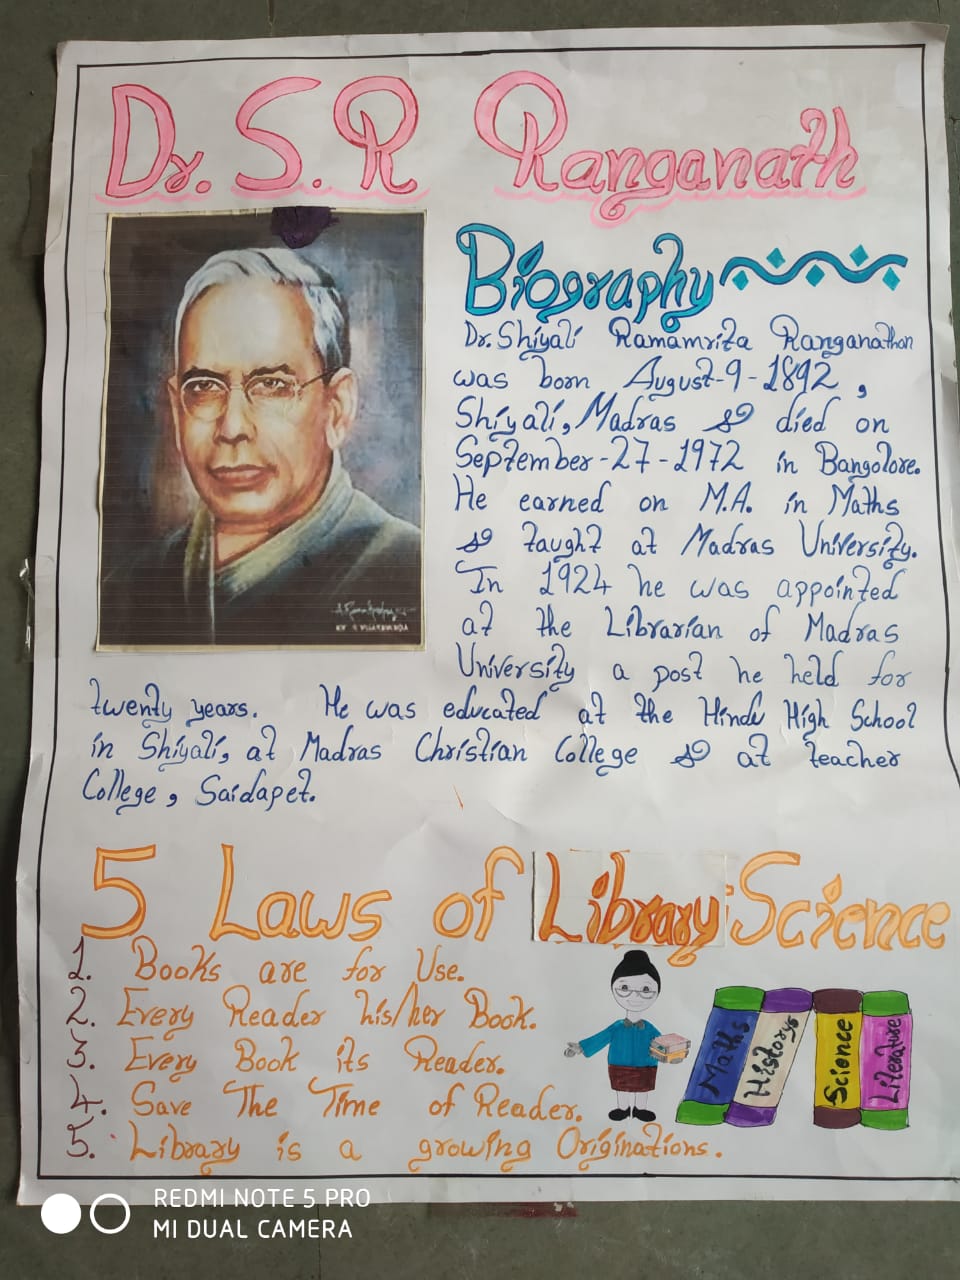 Dr. S. R Ranganath
Biography
Dr. Shiyali Ramamrita Ranganathan
was born August-9-1892,
Shiyali, Madras & died on
September-27-1972 in Bangolore.
He earned on M.A. in Maths
& taught at Madras University.
In 1924 he was appointed
at the Librarian of Madras
University a post he held for
twenty years. He was educated at the Hindu High School
in Shiyali, at Madras Christian College & at teacher
College, Saidapet.
5 Laws of Library Science
1. Books are for Use.
2. Every Reader his/her Book.
3. Every Book its Reader.
4. Save The Time of Reader.
5. Library is a growing Originations.
Maths
History
Science
Literature
REDMI NOTE 5 PRO
MI DUAL CAMERA